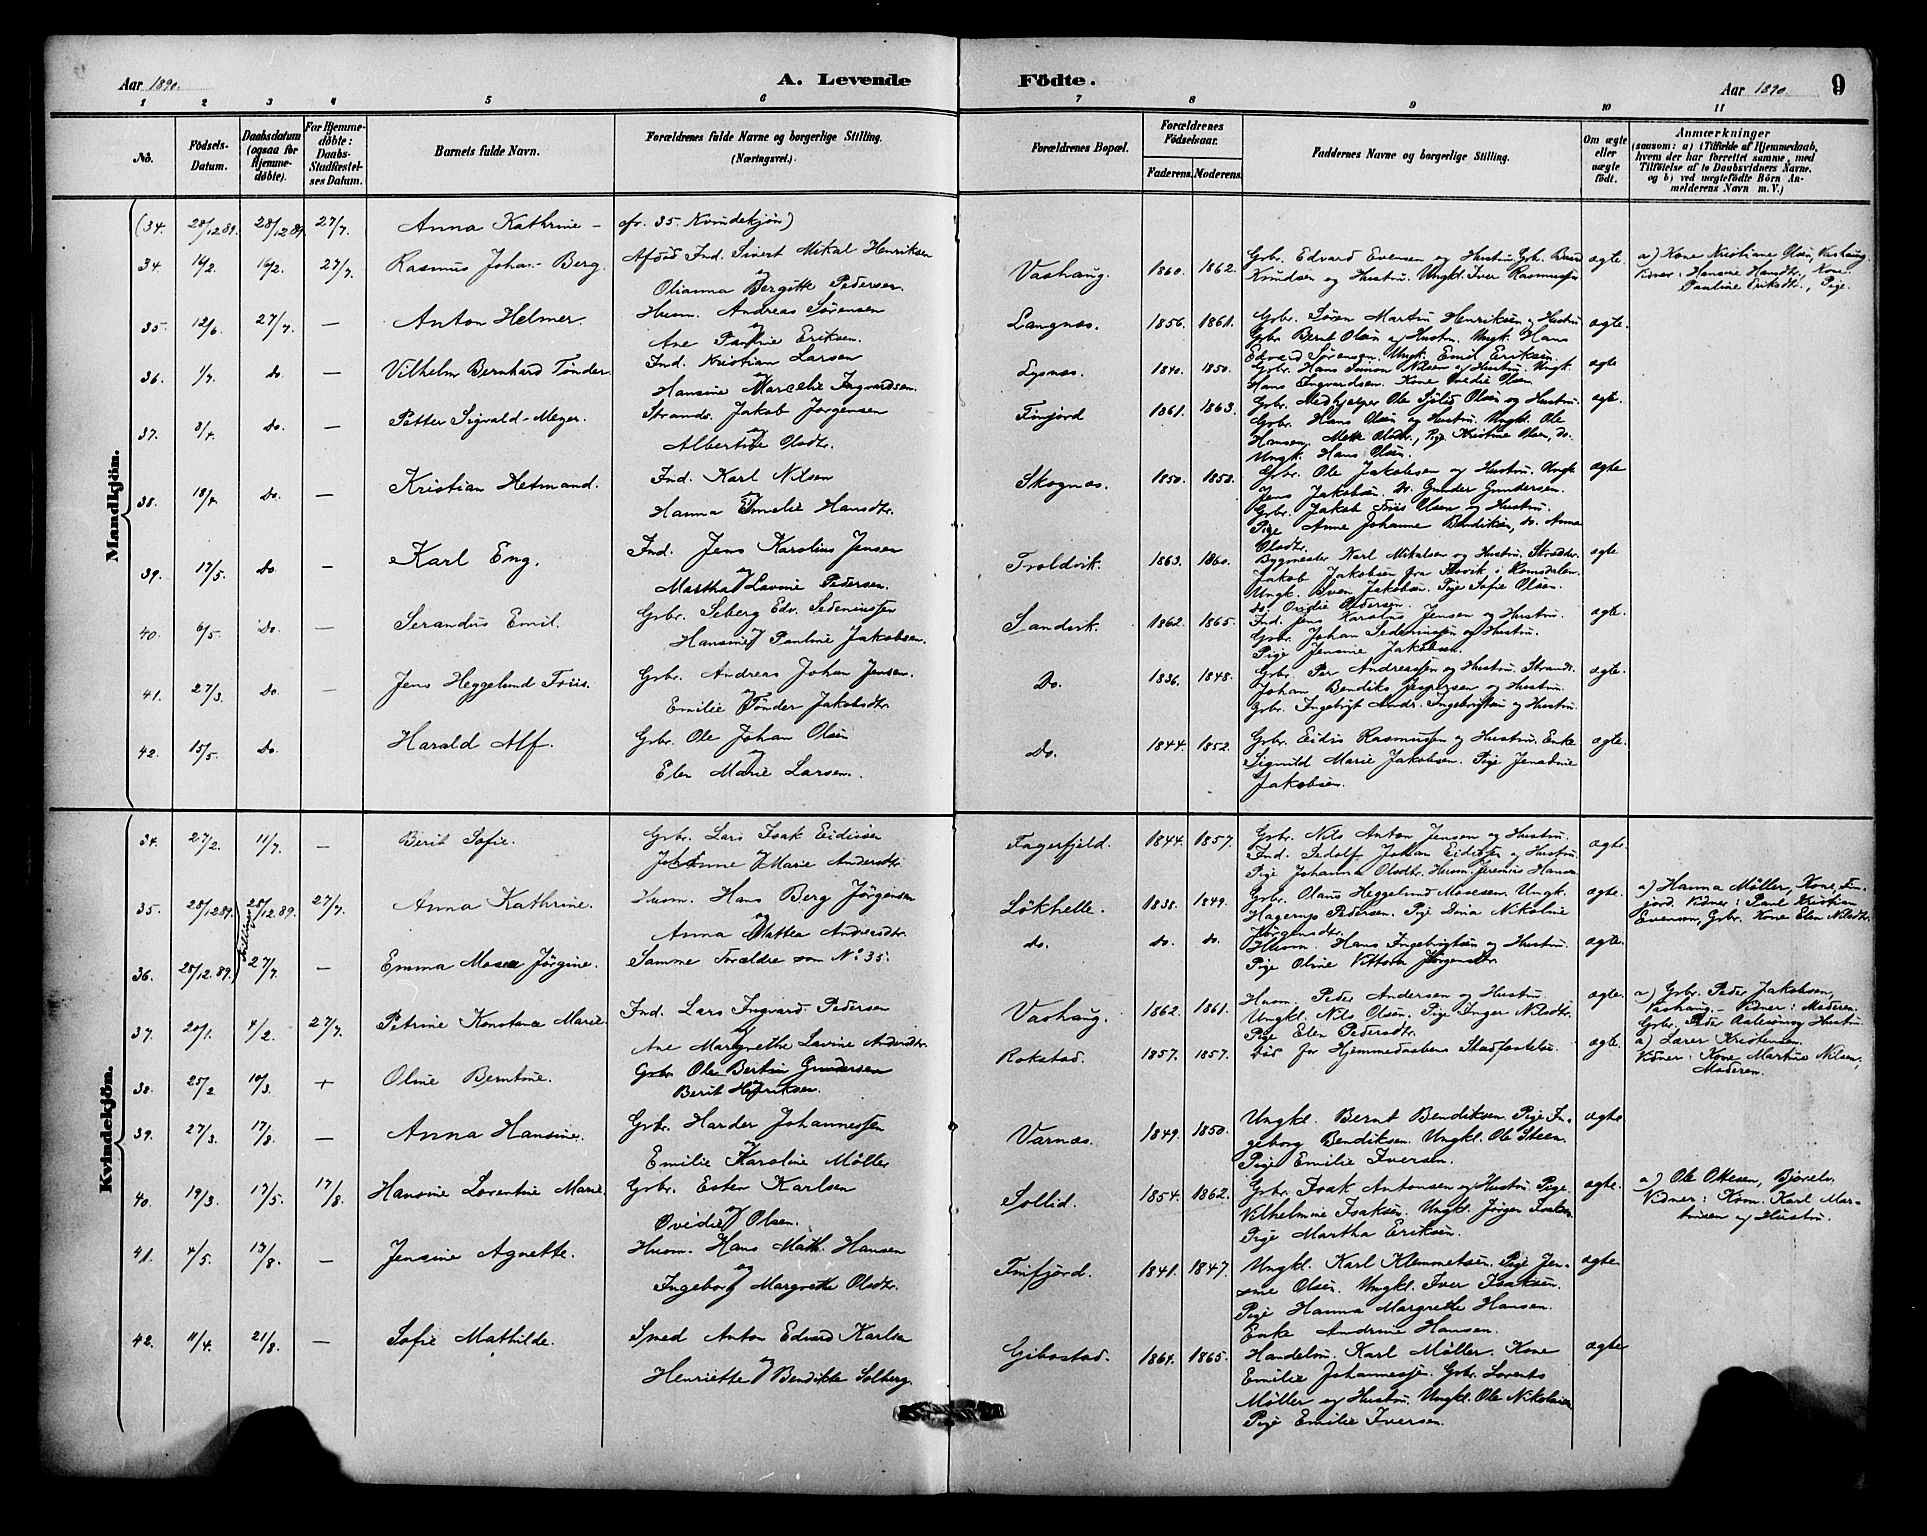 Aar 1890. A. Levende Födte. Aar 1890. 9
1 2 3 4 5 6 7 8 9 10 11
No. Födsels-Datum. Daabsdatum (ogsaa for Hjemmedöbte). For Hjemmedöbte: Daabs-Stadfæstelses Datum. Barnets fulde Navn. Forældrenes fulde Navne og borgerlige Stilling. (Næringsvei.) Forældrenes Bopæl. Forældrenes Födselsaar. Faderens. Moderens. Faddernes Navne og borgerlige Stilling. Om ægte eller uægte födt. Anmærkninger (saasom: a) i Tilfælde af Hjemmedaab, hvem der har forrettet samme, med Tilföielse af to Daabsvidners Navne. og b) ved uægtefödte Börn Anmelderens Navn m. V.)
Mandkjön.
(34. 28/12 89. 28/12 89 27/7. Anna Kathrine - cfr. 35. Kvindekjøn)
34. 16/2. 16/2. 27/7 Rasmus Johan Berg. Ind. Sivert Mikal Henriksen
og Olianna Bergitte Pedersen.
Vashaug. 1860. 1862. Grbr. Edvard Evensen og Hustru. Grbr.
Knudsen og Hustru. Ungkl. Iver Rasmussen
ægte. a) Kone Kristiane Olsen, Vashaug
Vidner: Hansine Hansdtr., Kone
Pauline Eriksdtr., Pige.
35. 12/6. 27/7. — Anton Helmer. Husm. Andreas Sørensen
og Ane Pauline Eriksen.
Langnæs. 1856. 1861. Grbr. Søren Martin Henriksen og Hustru
Grbr. Bernt Olsen og Hustru. Ungk. Hans
Edvard Sørensen. Ungk. Emil Eriksen.
ægte.
36. 1/7. Do. — Vilhelm Bernhard Tønder. Ind. Kristian Larsen
og Hansine Marcelie Ingvardsen.
Lysnæs. 1840. 1850. Grbr. Hans Simon Nilsen og Hustru. Ungk.
Hans Ingvardsen. Kone Ovedie Olsen
ægte
37. 3/4. Do. — Petter Sigvald Meyer. Strands. Jakob Jørgensen
og Albertine Olsdtr.
Finfjord 1861. 1863. Grbr. Medhjelper Ole Olsen og Hustru.
Grbr. Hans Olsen og Hustru. Ungk. Ole
Hansen. Mette Olsdtr., Pige Kristine Olsen, do.
Ungk. Hans Olsen.
ægte.
38. 18/4. Do. — Kristian Hetmand. Ind. Karl Nilsen
Hanna Emelie Hansdtr.
Skognæs. 1850. 1850. Grbr. Ole Jakobsen og Hustru. Ungk.
Jens Jakobsen. Do. Gunder Gundersen.
Grbr. Jakob Friis Olsen og Hustru.
Pige Anne Johanne Bendiksen, do. Anna
Olsdtr.
ægte
39. 17/5. Do — Karl Eng. Ind. Jens Karolius Jensen
Martha Lavine Pedersen.
Troldvik. 1863. 1860. Bygmester Karl Mikalsen og Hustru.
Jakob Jakobsen fra i Romsdalen.
Ungk. Sven Jakobsen. Pige Sofie Olsen.
do. Ovidie Pedersen.
ægte
40. 6/5. Do. — Serandus Emil. Grbr. Seberg Edv. Sedeniussen
Hansine Pauline Jakobsen.
Sandvik. 1862. 1865. Ind. Jens Karolius Jensen og Hustru
Grbr. Johan Sedeniussen og Hustru.
Pige Jensine Jakobsen.
ægte.
41. 27/3. Do. — Jens Heggelund Friis. Grbr. Andreas Johan Jensen.
Emilie Tønder Jakobsdtr.
Do. 1836. 1848. Grbr. Per Andreassen og Hustru. Strands.
Johan Bendiks Jespersen og Hustru.
Grbr. Ingebrigt Andr. Ingebrigtsen og Hustru.
ægte.
42. 15/5. Do. Harald Alf. Grbr. Ole Johan Olsen
og Elen Marie Larsen.
Do. 1844. 1852. Grbr. Eidis Rasmussen og Hustru. Enke
Sigvild Marie Jakobsen. Pige
Jakobsen.
ægte.
Kvindekjön.
34. 27/2. 11/7. — Berit Sofie. Grbr. Lars Isak Eidissen
Johanne Marie Andersdtr.
Fagerfjeld. 1844. 1857. Grbr. Nils Anton Jensen og Hustru.
Ind. Sedolf Johan Eidissen og Hustru.
Pige Johanna Olsdtr. Husm. Jeremias Hansen
ægte.
35. 28/12 89. 28/12 89. 27/7. Anna Kathrine. Husm. Hans Berg Jørgensen
og Anna Mattea Andersdtr.
Løkhelle. 1838. 1849. Grbr. Olaus Heggelund Mosesen. Ungk.
Hagerup Pedersen. Pige Dina Nikoline
Jørgensdtr.
ægte. a) Hanna Møller, Kone, Finfjord. Vidner: Paul Kristian
Evensen, Grbr. Kone Elen Nilsdtr.
Tvillinger
36. 28/12 89. 27/7. — Emma Mosea Jørgine. Samme Forældre som No 35.
do. do. do. Husm. Hans Ingebrigtsen og Hustru.
Pige Oline Viktoria Jørgensdtr.
ægte.
37. 20/1. 4/2. 27/7 Petrine Konstanse Marie. Ind. Lars Ingvard Pedersen
og Ane Margrethe Lavine Andersdtr.
Vashaug. 1862. 1861. Husm. Peder Andersen og Hustru
Ungkl. Nils Olsen. Pige Inger Nilsdtr.
Pige Elen Pedersdtr.
ægte. a) Grbr. Peder Jakobsen,
Vashaug. — Vidner: Moderen.
Grbr. Peder og Hustru.
38. 25/2 10/3. + Oline Berntine. Grbr. Ole Bertin Gundersen
Berit Henriksen.
Rokstad. 1857. 1857. Død før Hjemmedaabens Stadfæstelse. ægte. a) Lærer Kristensen.
Vidner: Kone Martine Nilsen,
Moderen.
39. 27/3. 17/8. — Anna Hansine. Grbr. Harder Johannessen
Emilie Karoline Møller
Varnæs. 1849. 1850. Ungkl. Bernt Bendiksen. Pige Ingeborg Bendiksen. Ungkl. Ole Steen.
Pige Emilie Iversen.
ægte
40. 19/3. 17/5. 17/8. Hansine Lorentine Marie. Grbr. Esten Karlsen
Ovidie Olsen.
Sollid. 1854. 1862. Grbr. Isak Antonsen og Hustru. Pige
Vilhelmine Isaksen. Ungkl. Jørgen Isaksen.
Pige Martha Eriksen.
ægte. a) Ole Ottesen, Bjorelv
Vidner: Husm. Karl Martinsen og Hustru.
41. 4/5. 17/8. — Jensine Agnette. Husm. Hans Math. Hansen
og Ingeborg Margrethe Olsdtr.
Finfjord. 1841. 1847. Ungkl. Karl Klemmetsen. Pige Jensine Olsen. Ungkl. Iver Isaksen.
Pige Hanna Margrethe Hansen.
Enke Andrine Hansen.
ægte
42. 11/4. 21/8. — Sofie Mathilde. Smed Anton Edvard Karlsen
og Henriette Bendikte Solberg.
Gibostad. 1864. 1865. Handelsm. Karl Møller. Kone
Emilie Johannessen. Grbr. Lorents
Møller og Hustru. Ungkl. Ole Nikolaisen
Pige Emilie Iversen.
ægte